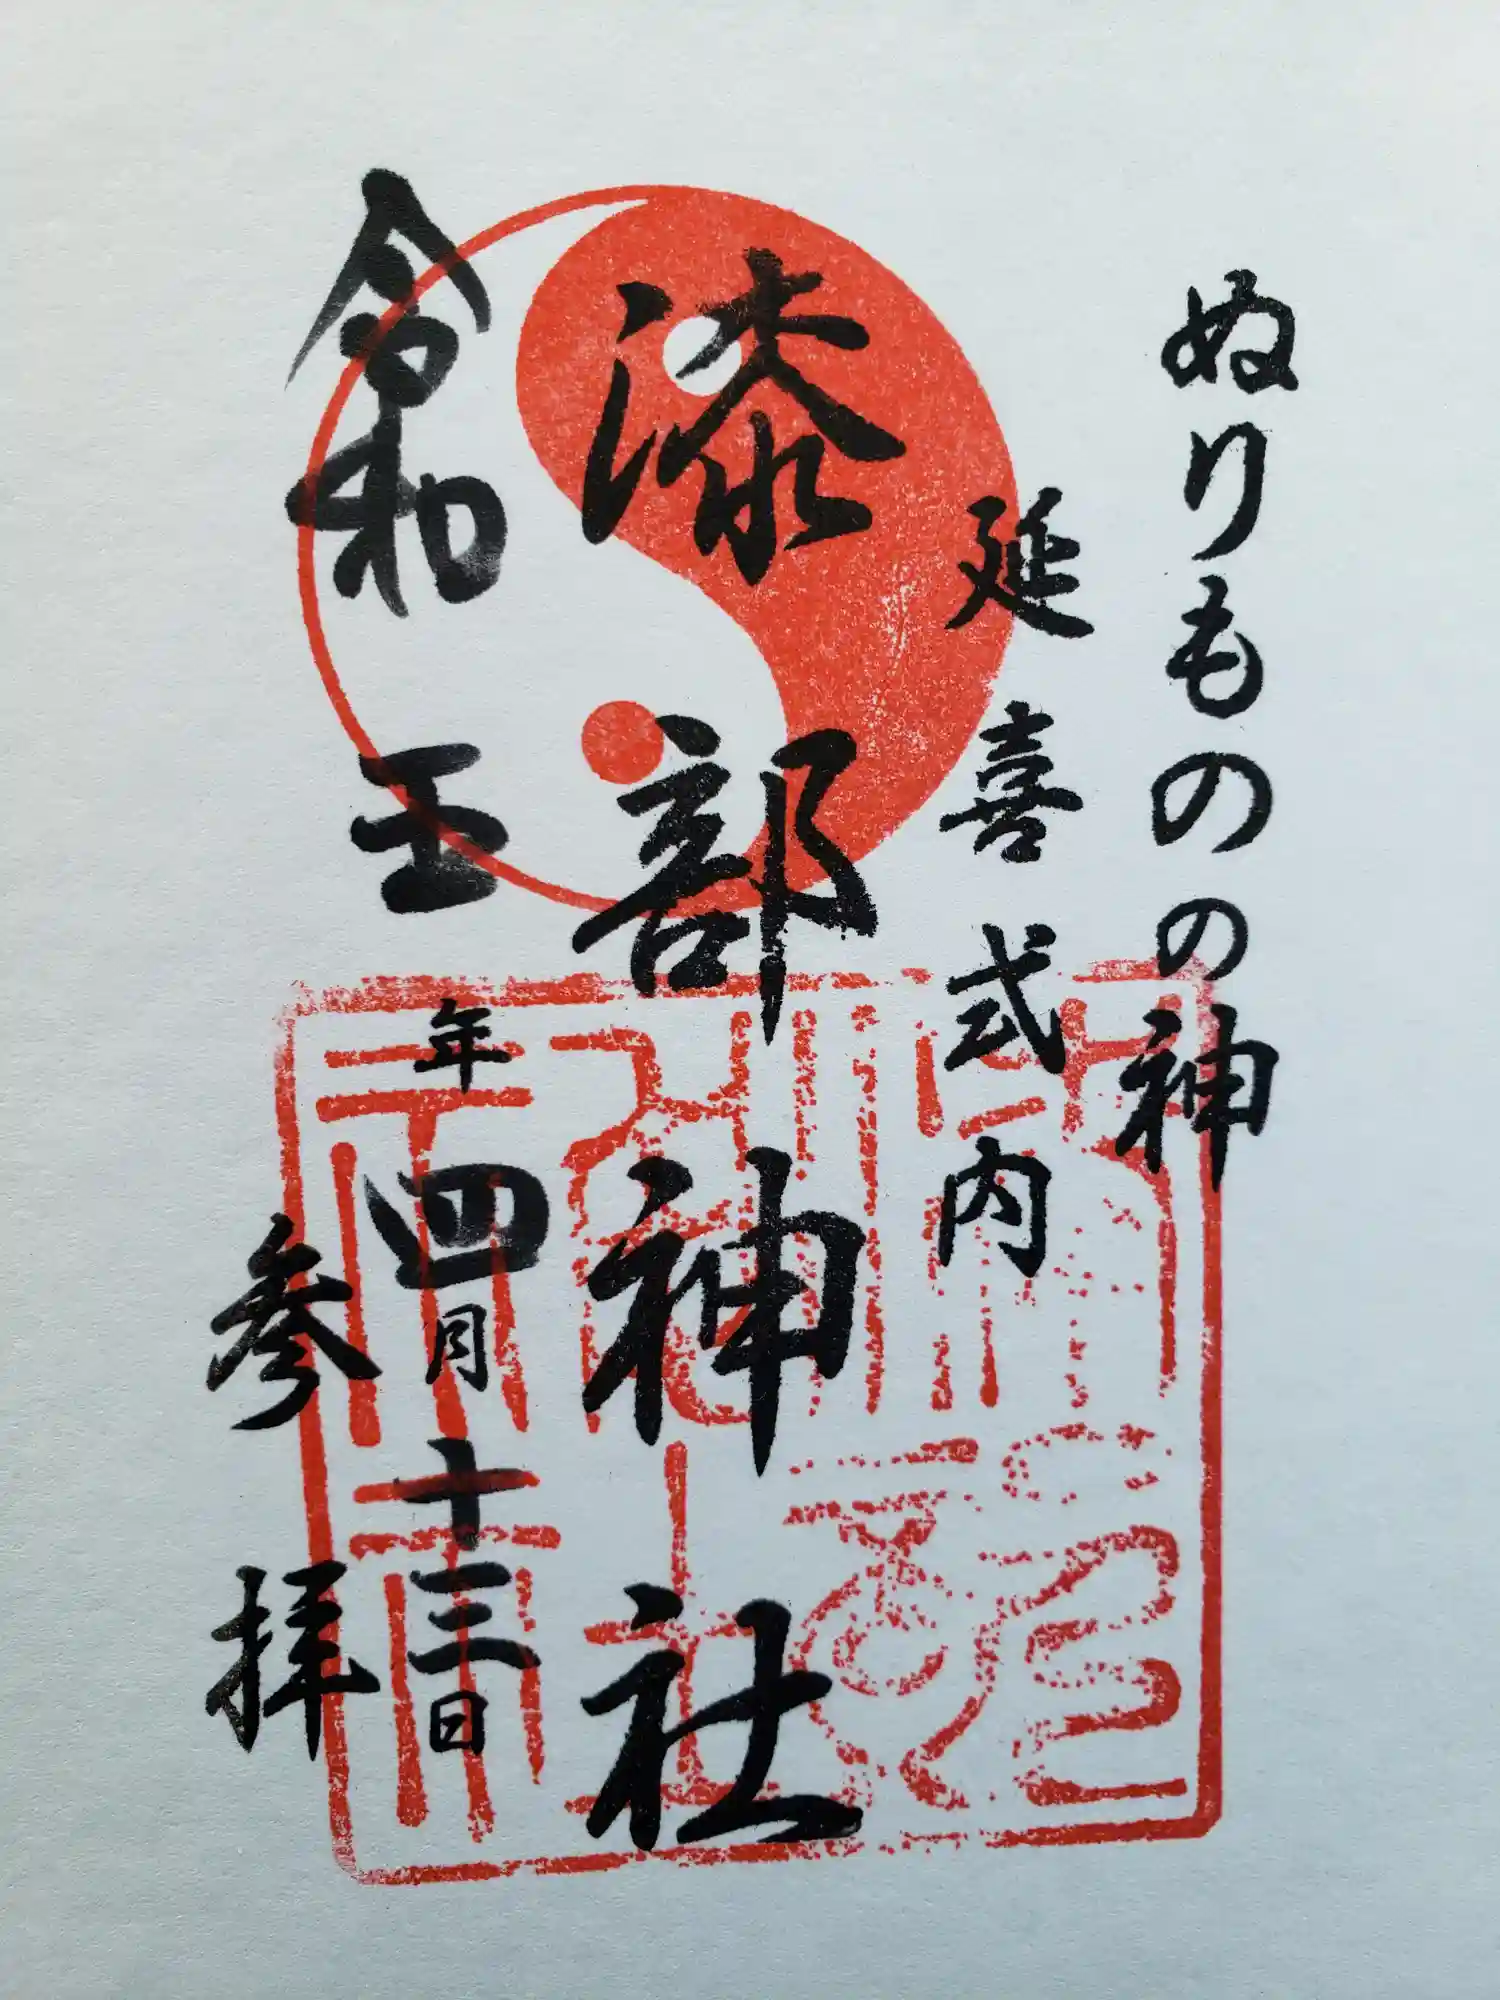 ぬりものの神
延喜式内
漆部神社
令和五年四月十三日
参拝